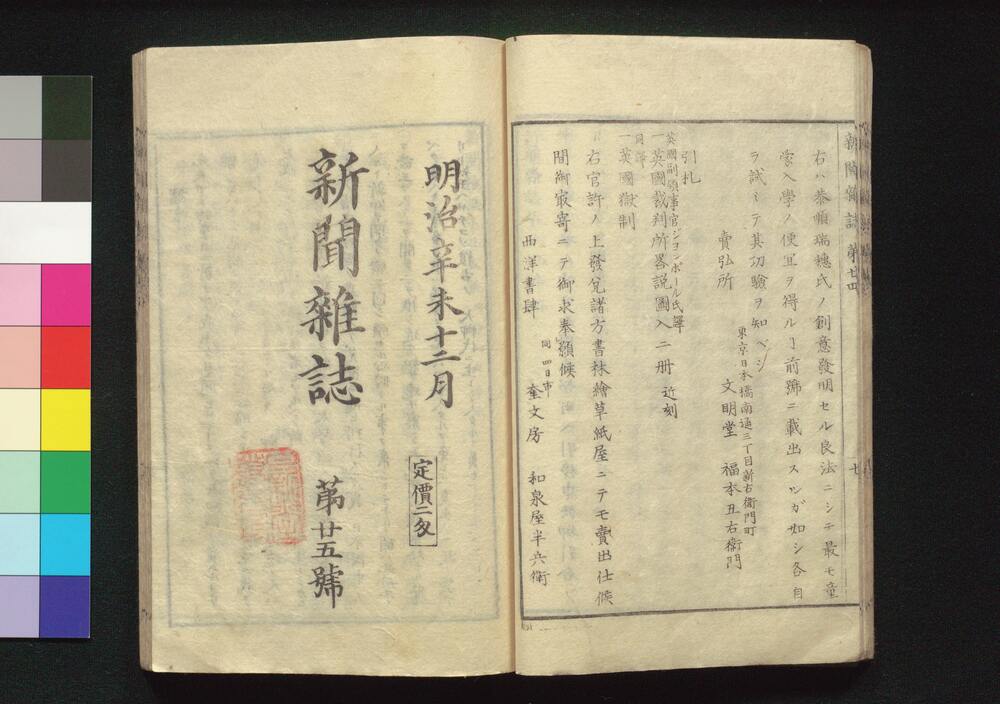 新聞雜誌 第廿四 七
右ハ恭順瑞穗氏ノ創意發明セル良法ニシテ最モ童
蒙入學ノ便宜ヲ得ルヿ前號ニ載出スルガ如シ各自
ヲ試ミテ其功驗ヲ知ベシ
賣弘所 東京日本橋南通三丁目新右衞門町
文明堂 福本丑右衞門
引札
英國副領事官ジヨンボール氏譯
一英國裁判所畧説圖入二册 近刻
同譯
一英國獄制
右官許ノ上發兌諸方書林繪草紙屋ニテモ賣出仕候
間御最寄ニテ御求奉願候
同四日市
西洋書肆 奎文房 和泉屋半兵衞
明治辛未十二月
定價二匁
新聞雜誌 第廿五號